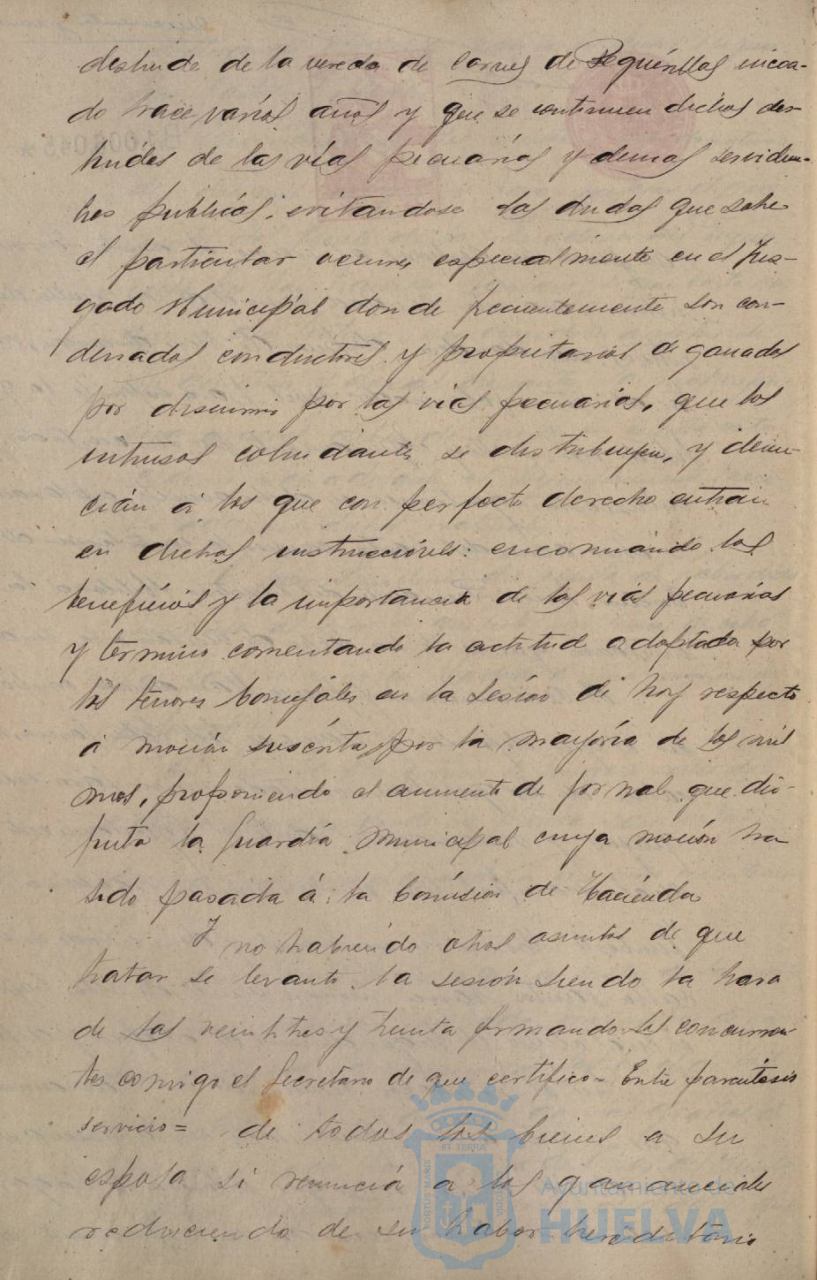 deslinde de la vereda de carnes de Peguerillas incoa-
do hace varios años y que se continuen dichos des-
lindes de las vías pecuarias y demas servidum-
bres publicas; evitandose las dudas que sobre
el particular ocurren especialmente en el Juz-
gado Municipal donde frecuentemente son con-
denados conductores y propietarios de ganados
por discurrir por las vias pecuarias, que los
intrusos colindantes se distribuyen, y denun-
cian á los que con perfecto derecho entran
en dichas : encomiando los
beneficios y la importancia de las vias pecuarias
y termino comentando la actitud adoptada por
los señores Concejales en la sesión de hoy respecto
á moción suscrita por la mayoría de los mis
mos, proponiendo el aumento de jornal que dis-
fruta la Guardia Municipal cuya moción ha
sido pasada á la Comision de Hacienda
Y no habiendo otros asuntos de que
tratar se levantó la sesión siendo la hora
de las veintitres y treinta firmando los concurren-
tes comigo el Secretario de que certifico = Entre parentesis
servicio = de todos los bienes a su
esposa si renuncia a los gananciales
reduciendo de su haber hereditario
Ayuntamiento de
HUELVA